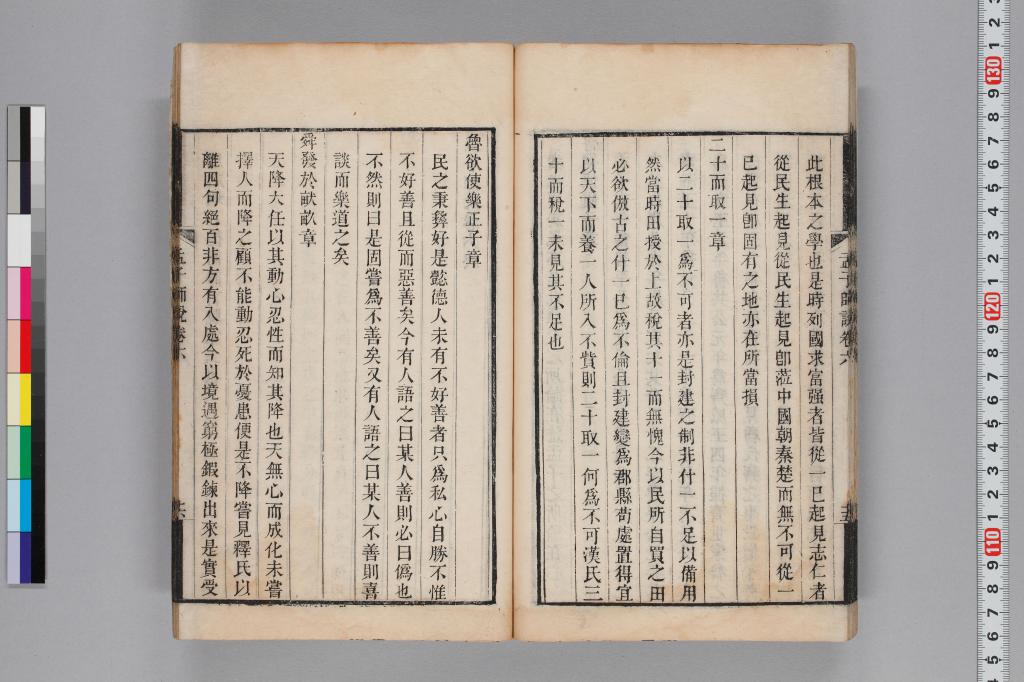 此根本之學也是時列國求富强者皆從一已起見志仁者
從民生起見從民生起見卽蒞中國朝秦楚而無不可從一
已起見卽固有之地亦在所當損
二十而取一章
以二十取一爲不可者亦是封建之制非什一不足以備用
然當時田授於上故稅其十一而無愧今以民所自買之田
必欲倣古之什一已爲不倫且封建變爲郡縣苟處置得宜
以天下而養一人所入不貲則二十取一何爲不可漢氏三
十而稅一未見其不足也
孟子師說卷六
魯欲使樂正子章
民之秉彝好是懿德人未有不好善者只爲私心自勝不惟
不好善且從而惡善矣今有人語之曰某人善則必曰僞也
不然則曰是固嘗爲不善矣又有人語之曰某人不善則喜
談而樂道之矣
舜發於畎畝章
天降大任以其動心忍性而知其降也天無心而成化未嘗
擇人而降之顧不能動忍死於憂患便是不降嘗見釋氏以
離四句絕百非方有入處今以境遇窮極鍜鍊出來是實受
孟子師說卷六